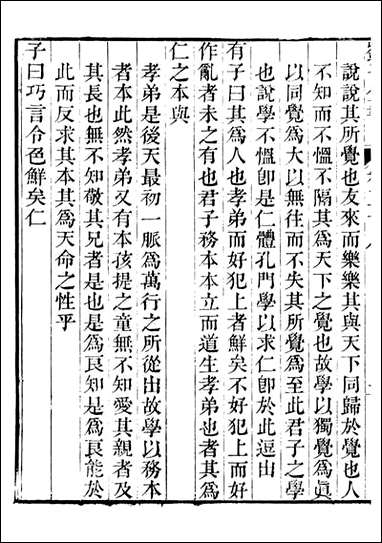 說說其所覺也友來而樂樂其與天下同歸於覺也人
不知而不慍不隔其爲天下之覺也故學以獨覺爲眞
以同覺爲大以無往而不失其所覺爲至此君子之學
也說學不慍卽是仁體孔門學以求仁卽於此逗出
有子曰其爲人也孝弟而好犯上者鮮矣不好犯上而好
作亂者未之有也君子務本本立而道生孝弟也者其爲
仁之本與
孝弟是後天最初一脈爲萬行之所從出故學以務本
者本此然孝弟又有本孩提之童無不知愛其親者及
其長也無不知敬其兄者是也是爲良知是爲良能於
此而反求其本其爲天命之性乎
子曰巧言令色鮮矣仁